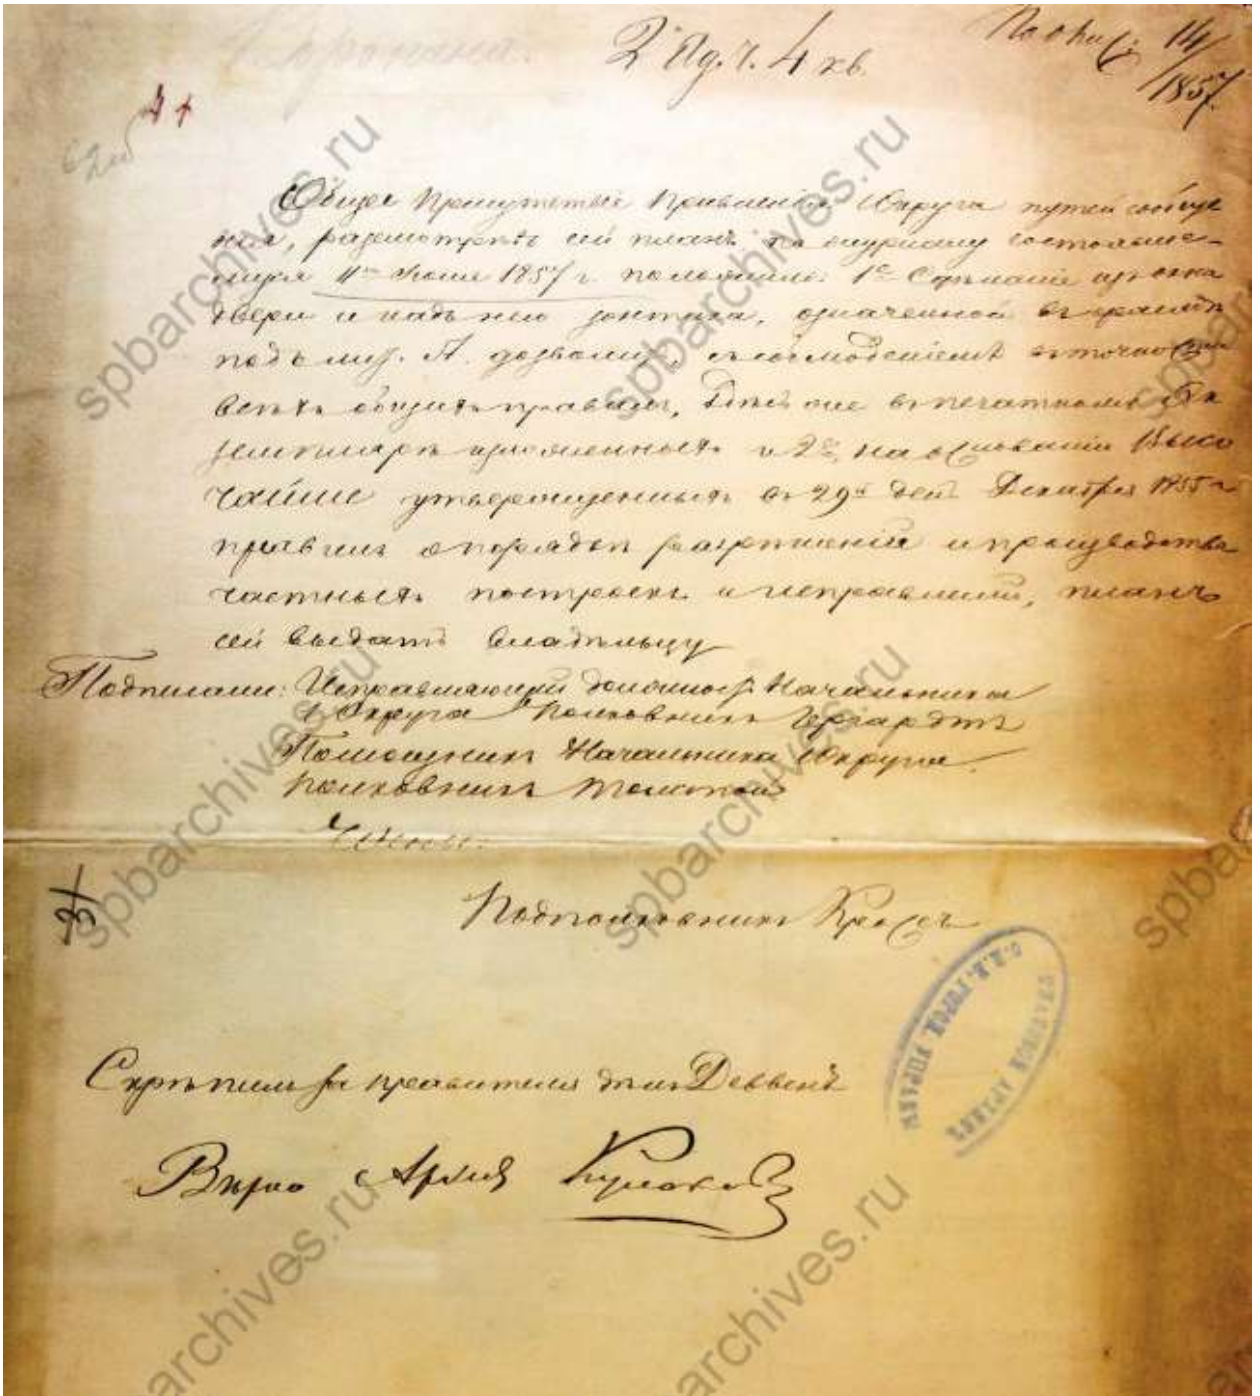 2 Ад. ч. 4 кв.
14/1857
Общее Присутствіе Правленія Округа путей сообще
нія, разсмотрѣвъ сей планъ по журналу состоявше-
муся 11го Іюля 1857 г. положило: 1е Сдѣланіе изъ окна
двери и надъ нею зонтика, означенной въ
подъ лит. А. дозволить, съ соблюденіемъ въ точности
всѣхъ общихъ правилъ, въ печатномъ Эк
земплярѣ изложенныхъ и 2е, на основаніи Высо
чайше утвержденныхъ въ 29й день Декабря 1855 г.
правилъ о порядкѣ разрѣшенія и производства
частныхъ построекъ и исправленій, планъ
сей выдать владѣльцу
Подписали: Исправляющій должност. Начальника
Округа Полковникъ Герардъ
Помощникъ Начальника Округа
Полковникъ Толстой
Члены:
Подполковникъ
Скрѣпилъ за правителя дѣлъ
Вѣрно
С.П.Б. ГОРОД. УПРАВЫ
АРХИВЪ
spbarchives.ru